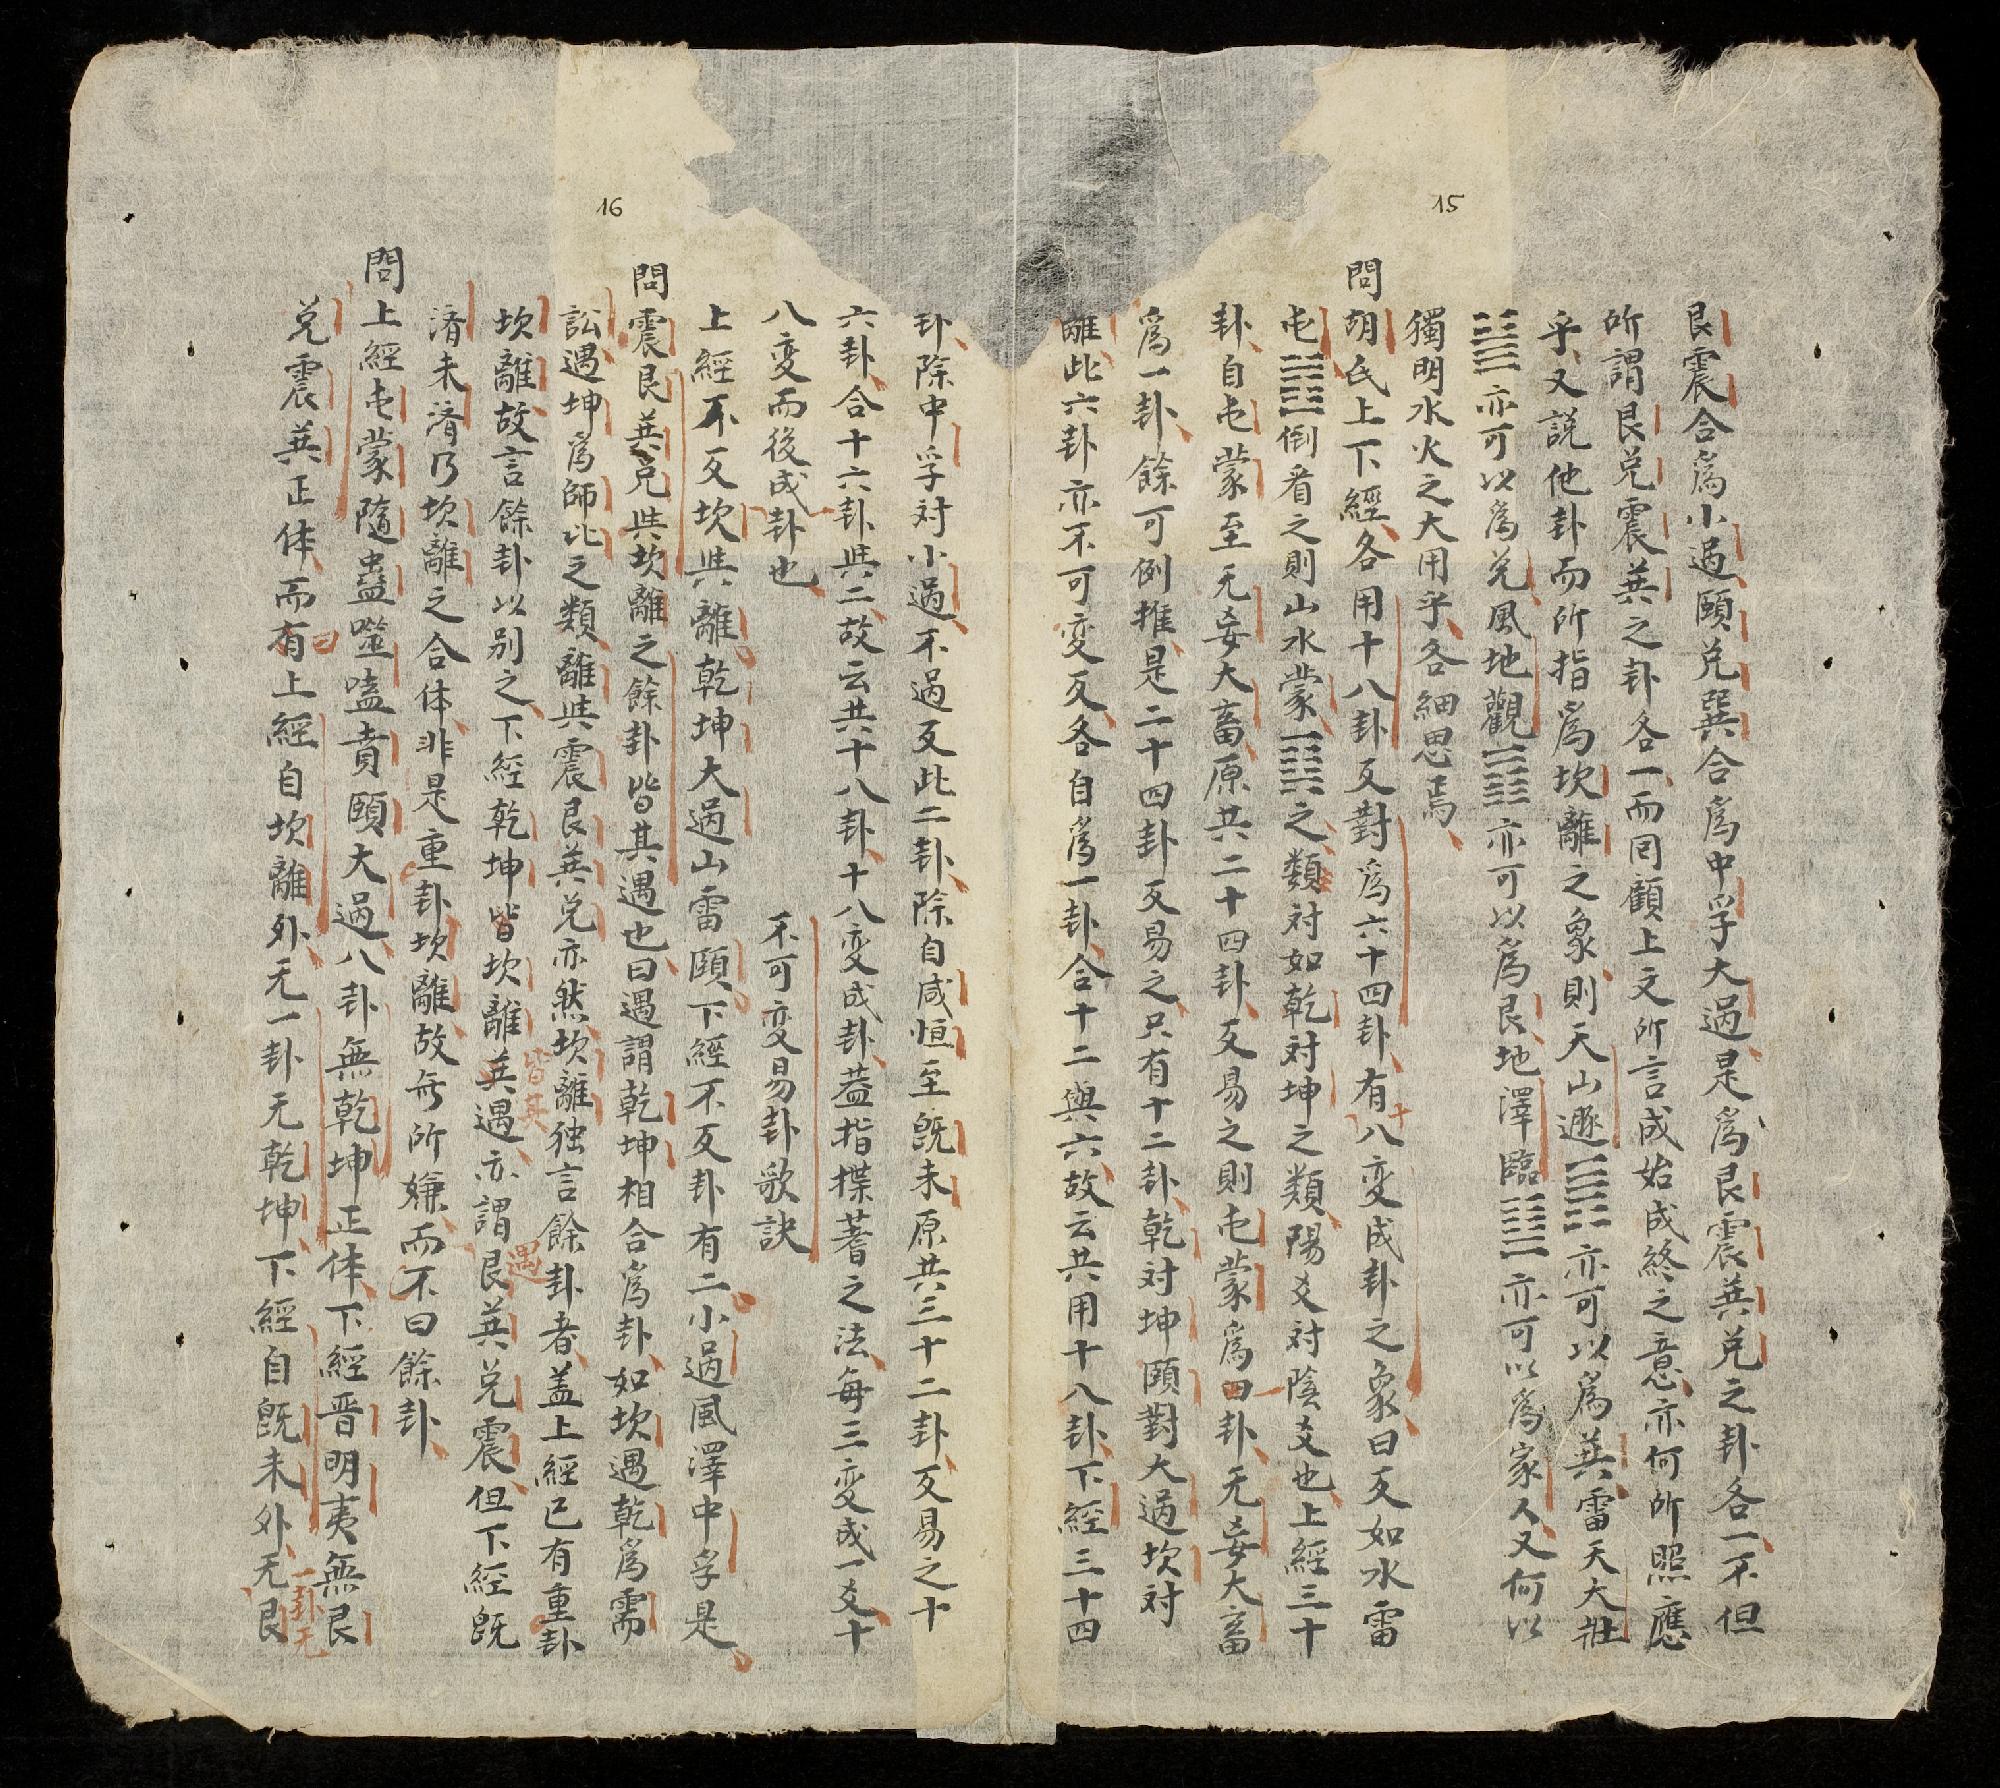 15
艮震合爲小過頤兌巽合爲中孚大過是爲艮震巽兌之卦各一不但
所謂艮兌震巽之卦各一而囘顧上文所言成始成終之意亦何所照應
乎又説他卦而所指爲坎離之象則天山遯䷠亦可以爲巽雷天大壯
䷡亦可以爲兌風地觀䷓亦可以爲艮地澤臨䷒亦可以爲家人又何以
獨明水火之大用乎各細思焉
問胡氏上下經各用十八卦反對爲六十四卦有十八变成卦之象曰反如水雷
屯䷂倒看之則山水蒙䷃之類対如乾対坤之類陽爻対陰爻也上經三十
卦自屯蒙至无妄大畜原共二十四卦反易之則屯蒙爲一卦无妄大畜
爲一卦餘可例推是二十四卦反易之只有十二卦乾対坤頤對大過坎対
離此六卦亦不可变反各自爲一卦合十二與六故云共用十八卦下經三十四
16
卦除中孚対小過不過反此二卦除自咸恒至旣未原共三十二卦反易之十
六卦合十六卦與二故云共十八卦十八变成卦葢指揲蓍之法每三变成一爻十
八变而後成卦也
不可变易卦歌訣
上經不反坎與離乾坤大過山雷頤下經不反卦有二小過風澤中孚是
問震艮巽兌與坎離之餘卦皆其遇也曰遇謂乾坤相合爲卦如坎遇乾爲需
訟遇坤爲師比之類離與震艮巽兌亦然坎離独言餘卦者盖上經已有重卦
坎離故言餘卦以别之下經乾坤皆坎離皆其巽遇亦謂遇艮巽兌震但下經旣
濟未濟乃坎離之合体非是重卦坎離故无所嫌而不曰餘卦
問上經屯蒙隨蠱噬嗑賁頤大過八卦無乾坤正体下經晋明夷無艮
兌震巽正体而有曰上經自坎離外无一卦无乾坤下經自旣未外无一卦无艮